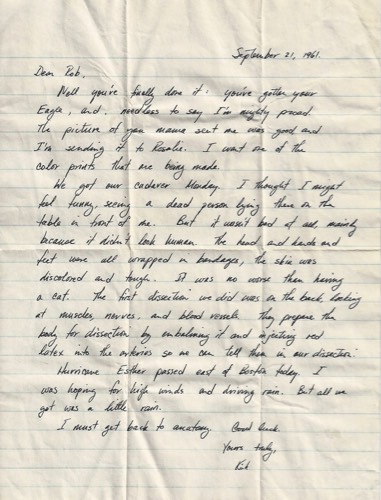 September 21, 1961.
Dear Rob,
Well you've finally done it! You've gotten your
Eagle, and, needless to say I'm mighty proud.
The picture of you mama sent me was good and
I'm sending it to Rosalie. I want one of the
color prints that are being made.
We got our cadaver Monday. I thought I might
feel funny, seeing a dead person lying there on the
table in front of me. But it wasn't bad at all, mainly
because it didn't look human. The head and hands and
feet were all wrapped in bandages, the skin was
discolored and tough. It was no worse than having
a cat. The first dissection we did was on the back looking
at muscles, nerves, and blood vessels. They prepare the
body for dissection by embalming it and injecting red
latex into the arteries so we can tell them in our dissection.
Hurricane Esther passed east of Boston today. I
was hoping for high winds and driving rain. But all we
got was a little rain.
I must get back to anatomy. Good luck.
Yours truly,